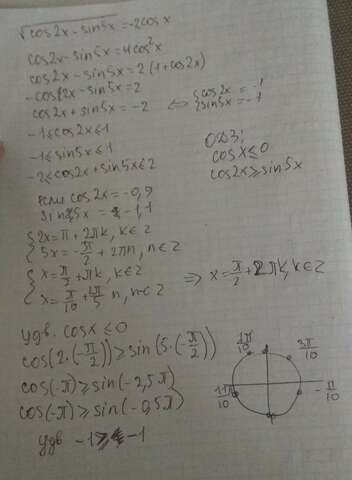 √cos2x - sin5x = -2cosx
cos2x - sin5x = 4cos²x
cos2x - sin5x = 2(1+cos2x)
-cos2x - sin5x = 2
cos2x + sin5x = -2 ⇔ {cos2x = -1
sin5x = -1
-1≤cos2x≤1
-1≤sin5x≤1
-2≤cos2x+sin5x≤2
ОДЗ:
cosx≤0
cos2x≥sin5x
если cos2x = -0,9
sin5x = -1,1
{2x = π + 2πk, k∈Z
5x = -π/2 + 2πn, n∈Z
{x = π/2 + πk, k∈Z
x = -π/10 + 2π/5 n, n∈Z
⇒ x = π/2 + 2πk, k∈Z
удв. cosx ≤ 0
cos(2·(-π/2)) ≥ sin(5·(-π/2))
cos(-π) ≥ sin(-2,5π)
cos(-π) ≥ sin(-0,5π)
удв -1 ≥ -1
3π/10
-π/10
11π/10